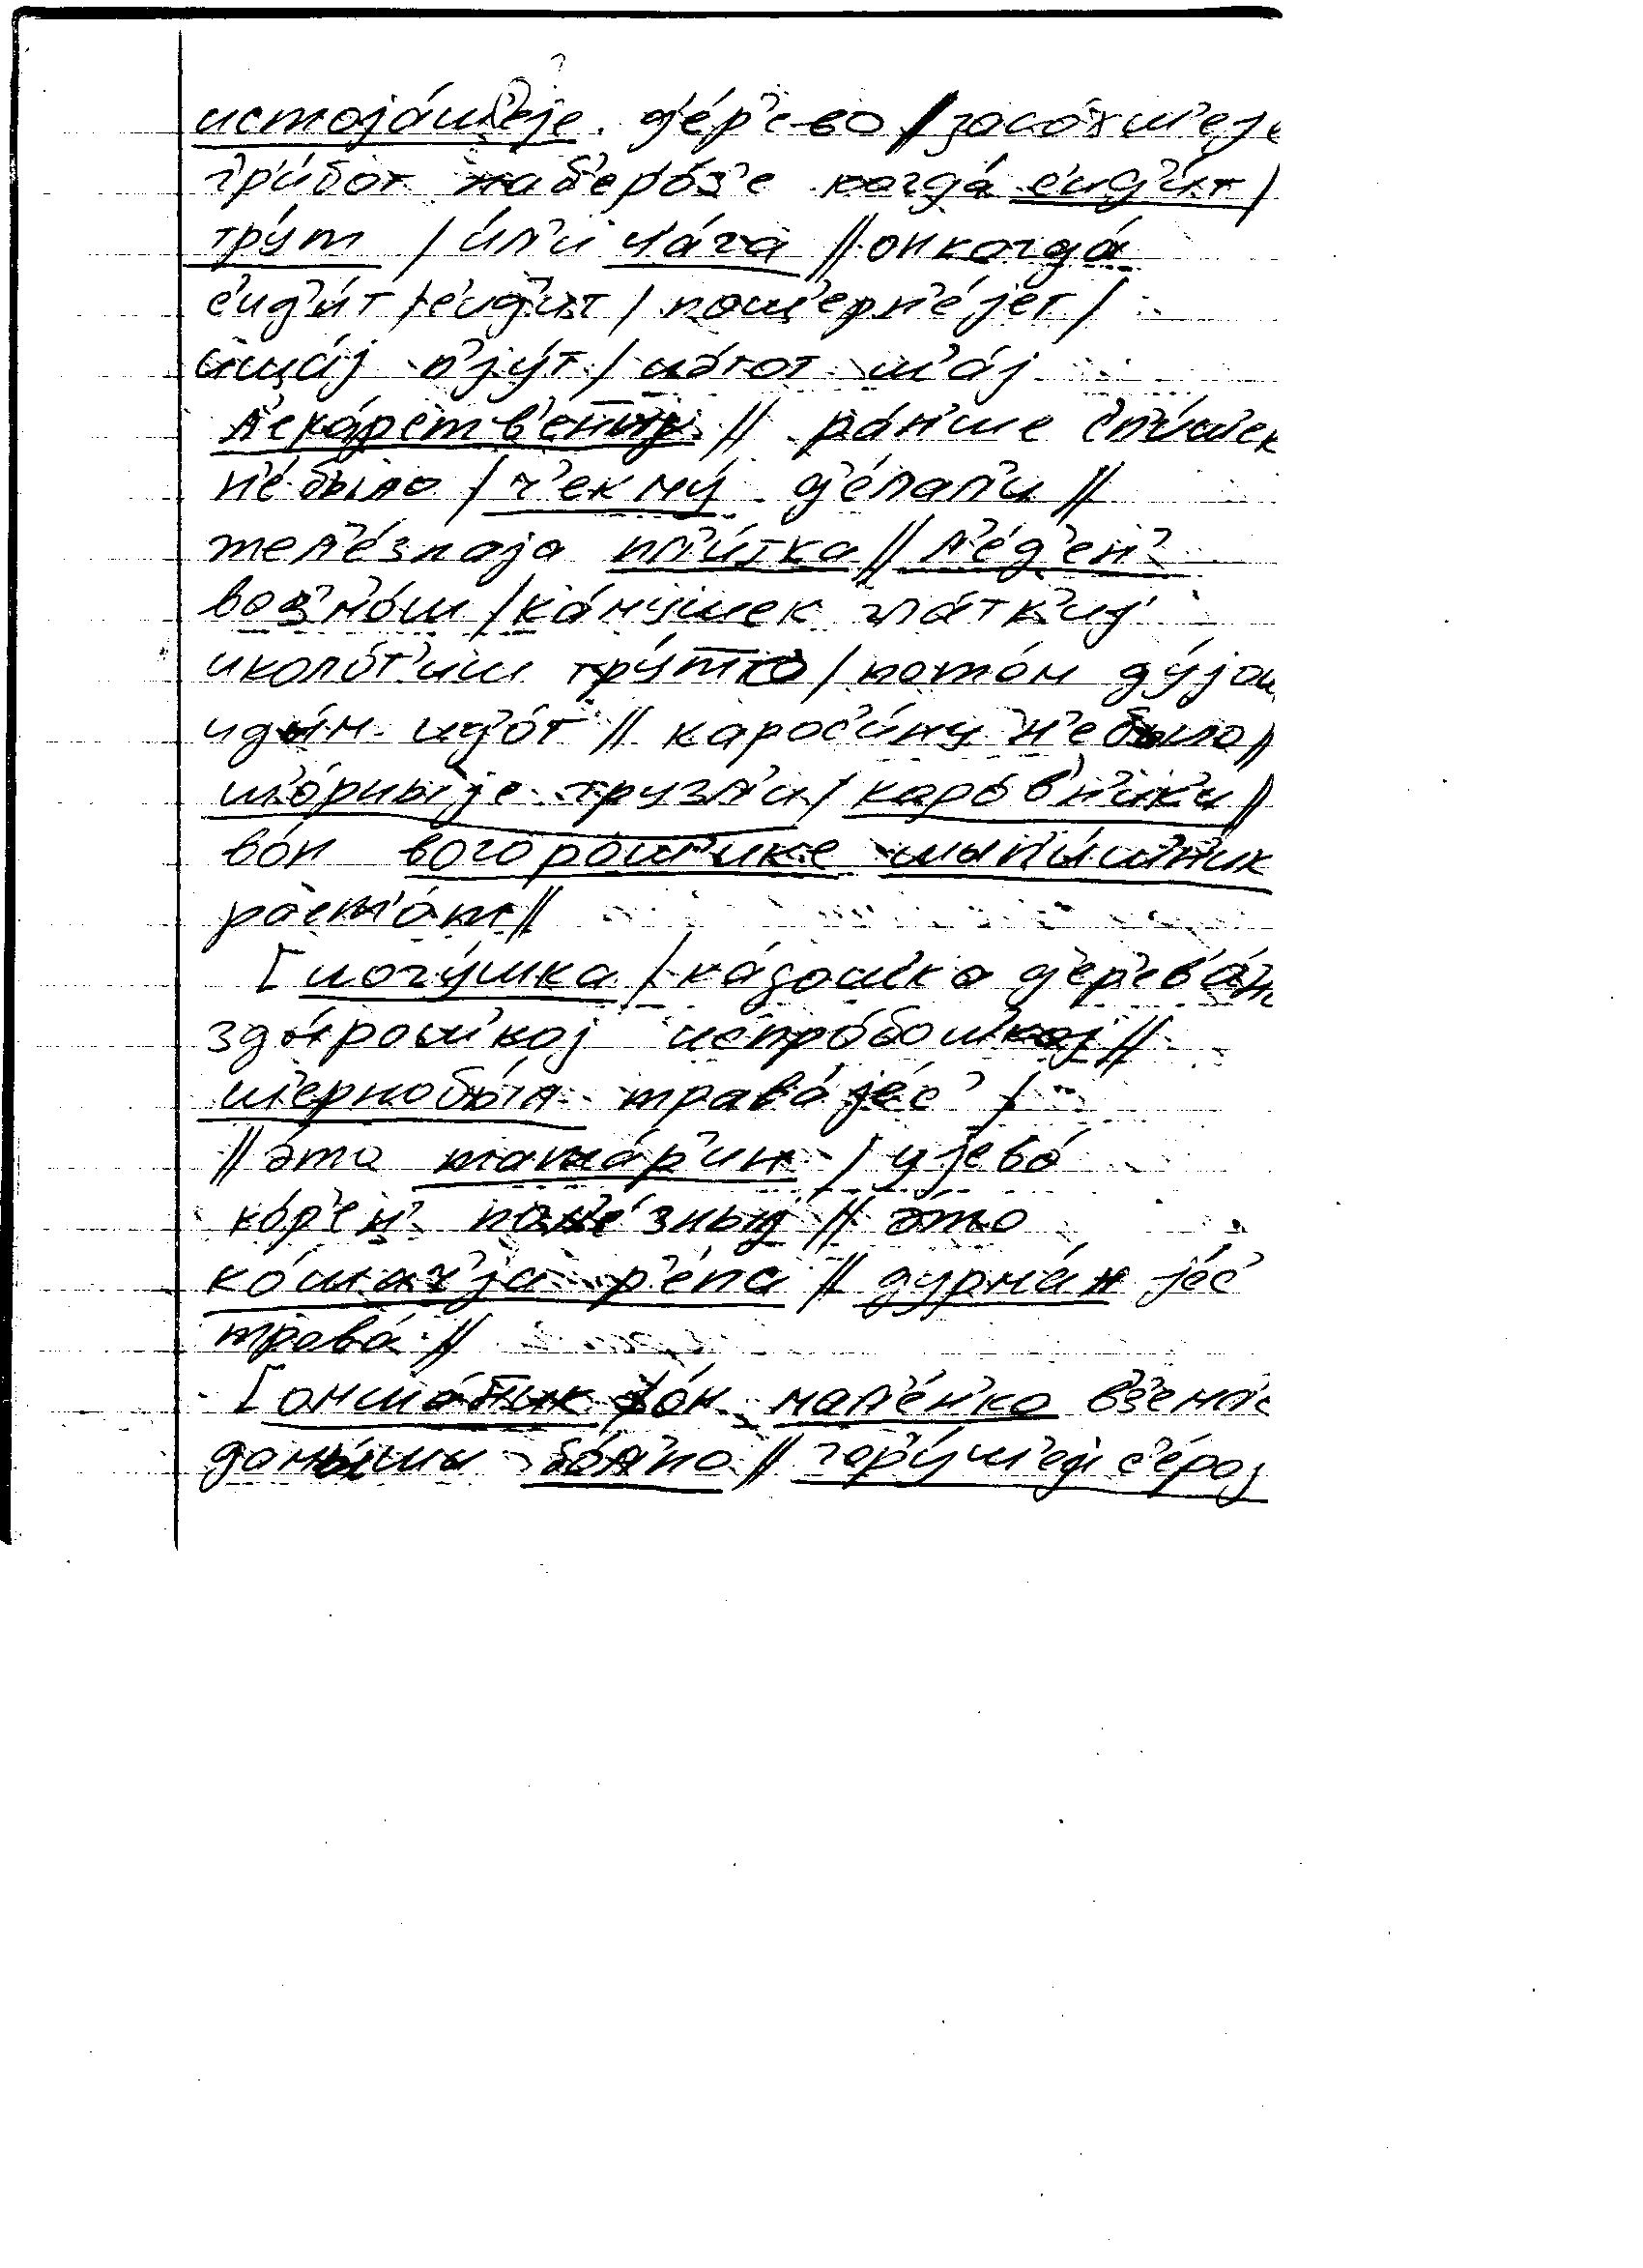 истоја́ш'еје д'е́р'ево // засо́хш'еј
гр'и́бот наб'еро́з'е когда́ с'ид'и́т /
тру́т / и́л'и ча́га // он когда́
с'ид'и́т / с'ид'и́т / пош'ерн'е́јет /
ищ'а́ј п'ју́т / иэ́тот ш'а́ј
л'ека́рств'еныј // ра́н'ше сп'и́ш'ек
н'е́было / ч'екму́ д'е́лал'и //
жел'е́знаја пл'и́тка // л'е́д'ен'
воз'м'о́ш / ка́мушек гла́тк'иј
иколо́т'иш тру́тто / пото́м ду́још
иды́м ид'о́т // карос'и́ну н'е́было //
ш'о́рныје грузл'и́ / каро́вн'ик'и //
во́н вогоро́ш'ике шып'и́шн'ик
раст'о́т //
[ногу́шка / ка́дош'ка д'ер'ев'а́н
зды́рош'кој испро́бош'кој //
ш'ернобы́л трава́ је́с' /
// э́то тата́р'ин / ујево́
ко́р'ен' пол'е́зныј // э́то
ко́шач'ја р'е́па // дурма́н је́с'
трава́ //
[омша́н'ик во́н мал'е́нко вз'емл'е
домы́шы бо́л'но // гор'у́ш'еј с'е́рој